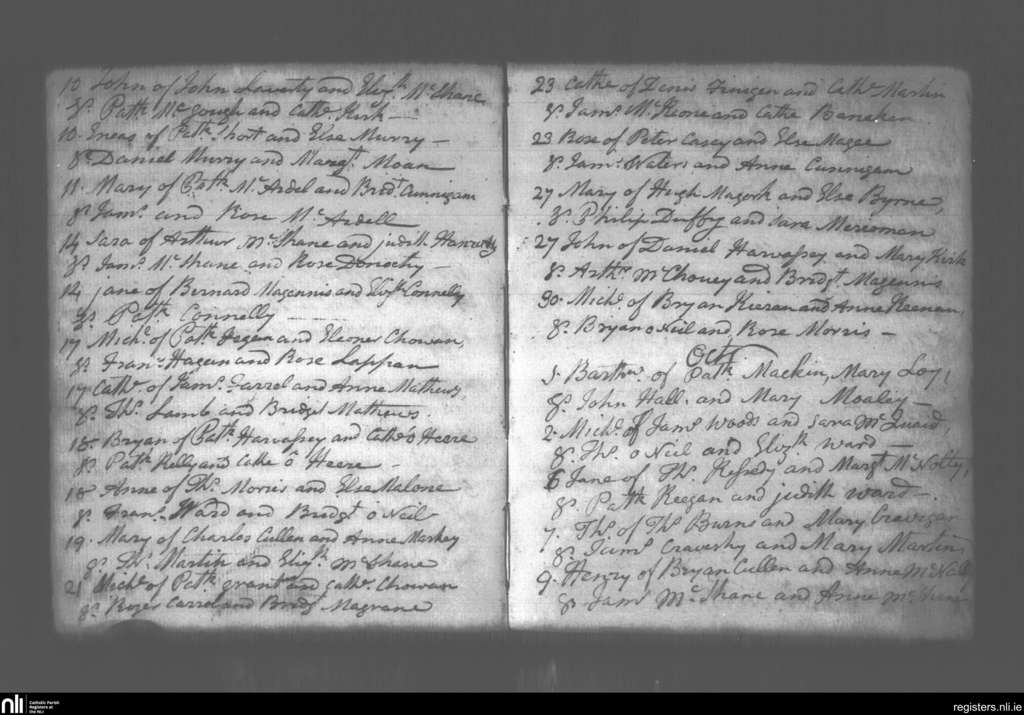 10 John of John Laverty and Elizth McShane
Ss. Patk McGough and Cathe Kirk —
10. Eneas of Patk Short and Else Murry —
Ss. Daniel Murry and Margt Moan
11. Mary of Patk McArdel and Bridt Cunnigam
Ss. Jams and Rose McArdell
14 Sara of Arthur McShane and judith
Ss. Jams McShane and Rose Donoghy —
14 jane of Bernard Magennis and Elizth Connelly
Ss Patk Connelly
17 Michl of Patk Fegan and Eleoner Chowan,
Ss. Frans Hagan and Rose Lappan
17 Cathe of Jams Farrel and Anne Mathews,
Ss. Ths Lamb and Bridget Mathews.
18 Bryan of Patk Harvassey and Cathe o Heere
Ss. Patk Kelly and Cathe o Heere —
18 Anne of Ths Morris and Else Malone
Ss. Frans Ward and Bridgt o Neil
19. Mary of Charles Cullen and Anne Markey
Ss. Ths Martin and Elizth McShane
21 Michl of Patk grant and Cathe Chowan
Ss. Roger Carrol and Bridgt Magrane
23 Cathe of Denis Finigen and Cathe Martin
Ss. Jams McKeone and Cathe
23 Rose of Peter Casey and Else Magee
Ss. Jams Waters and Anne Cunnigam
27 Mary of Hugh Magork and Else Byrne,
Ss. Philip Duffy and Sara Merioman
27 John of Daniel Harvassey and Mary Kirk
Ss. Arthr McChoney and Bridgt Magennis
30. Michl of Bryan Kieran and Anne Keenan,
Ss. Bryan o Neil and Rose Morris —
Octr
Barthw of Patk Mackin, Mary Loy,
Ss. John Hall. and Mary Moaley —
2. Michl of Jams Woods and Sara McQuaid,
Ss. Ths o Neil and Elizth Ward —
6 Jane of Ths and Margt McNolty,
Ss. Patk Keegan and judith Ward —
7. Ths of Ths Burns and Mary
Ss. Jams and Mary Martin,
9. Henry of Bryan Cullen and Anne McNally
Ss. Jams McShane and Anne McShane
nli
Catholic Parish
Registers at
the NLI
registers.nli.ie